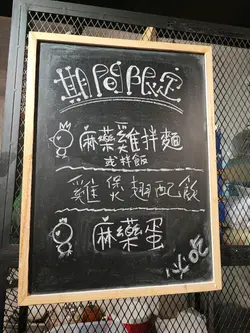 期間限定
麻藥雞拌麵
或拌飯
雞煲翅配飯
麻藥蛋
小心吃